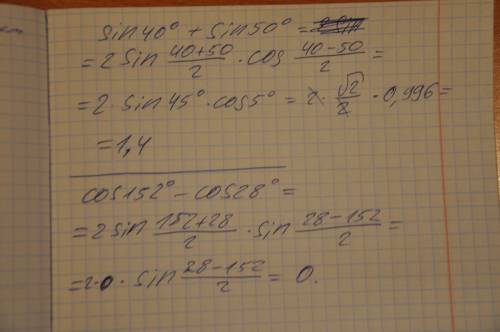 sin40° + sin50° =
= 2 sin (40+50)/2 · cos (40-50)/2 =
= 2 · sin45° · cos5° = 2 · √2/2 · 0,996 =
= 1,4
cos152° - cos28° =
= 2 sin (152+28)/2 · sin (28-152)/2 =
= 2·0 · sin (28-152)/2 = 0.